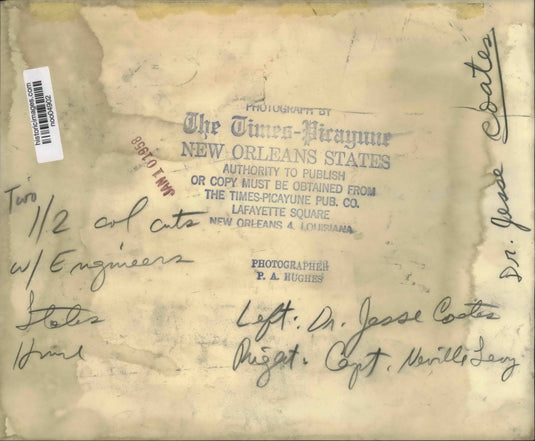 historicimages.com
noo04902
PHOTOGRAPH BY
The Times-Picayune
NEW ORLEANS STATES
AUTHORITY TO PUBLISH
OR COPY MUST BE OBTAINED FROM
THE TIMES-PICAYUNE PUB. CO.
LAFAYETTE SQUARE
NEW ORLEANS 4, LOUISIANA
JAN 10 1958
PHOTOGRAPHER
P. A. HUGHES
Two
1/2 col cuts
w/ Engineers
States
Left: Dr. Jesse Coates
Right. Capt. Neville Levy
Dr. Jesse Coates